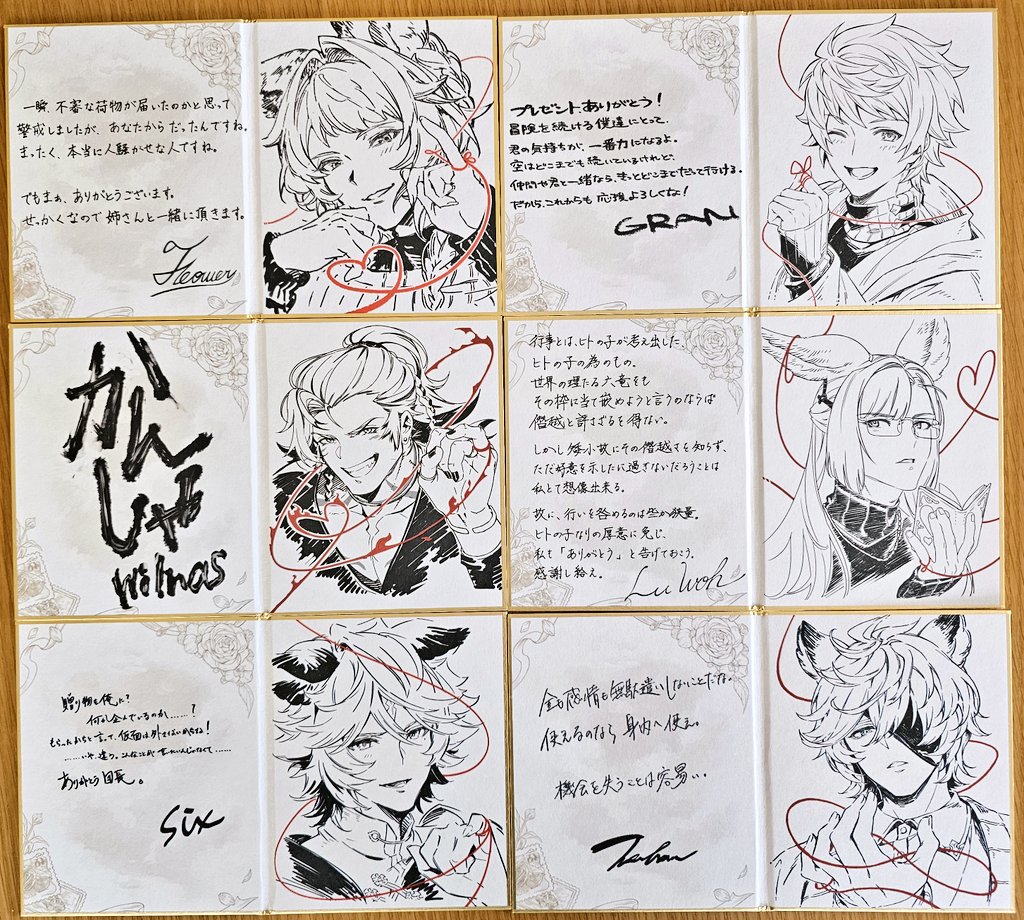 一瞬、不審な荷物が届いたのかと思って
警戒しましたが、あなたからだったんですね。
まったく、本当に人騒がせな人ですね。
でもまぁ、ありがとうございます。
せっかくなので姉さんと一緒に頂きます。
プレゼントありがとう！
冒険を続ける僕達にとって、
君の気持ちが、一番力になるよ。
空はどこまでも続いているけれど、
仲間や君と一緒なら、きっとどこまでだって行ける。
だから、これからも応援よろしくな！
GRAN
かん
しゃ
Wilnas
行事とは、ヒトの子が考え出した、
ヒトの子の為のもの。
世界の理たる六竜をも
その枠に当て嵌めようと言うのならば
僭越と評さざるを得ない。
しかし矮小故にその僭越さを知らず、
ただ好意を示したに過ぎないだろうことは
私とて想像出来る。
故に、行いを咎めるのは些か狭量。
ヒトの子なりの厚意に免じ、
私も「ありがとう」と告げておこう。
感謝し給え。
Lu Woh
贈り物を俺に？
何か企んでいるのか……？
もらったからと言って、仮面は外さないからな！
……いや、違う。こんなことが言いたいんじゃなくて……
ありがとう団長。
Six
金も感情も無駄遣いしないことだな。
使えるのなら身内へ使え。
機会を失うことは容易い。